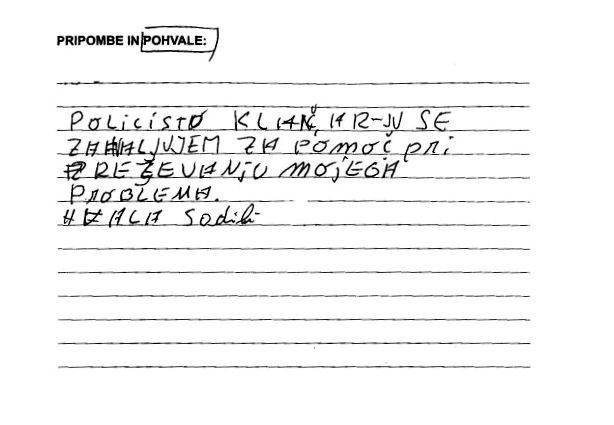 PRIPOMBE IN POHVALE:
POLICISTU KLANČAR-JU SE
ZAHVALJUJEM ZA POMOČ PRI
REŠEVANJU MOJEGA
PROBLEMA.
HVALA